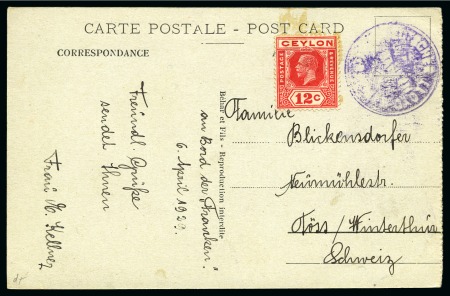 CARTE POSTALE - POST CARD
CORRESPONDANCE
Freundl. Grüße
sendet Ihnen
Frau H. Kellner
an Bord der "Franken"
6 April 1929.
Behar et Fils - Reproduction interdite
CEYLON
POSTAGE
& REVENUE
12 C
Familie
Blickensdorfer
Neumühlestr.
Töss / Winterthur
Schweiz